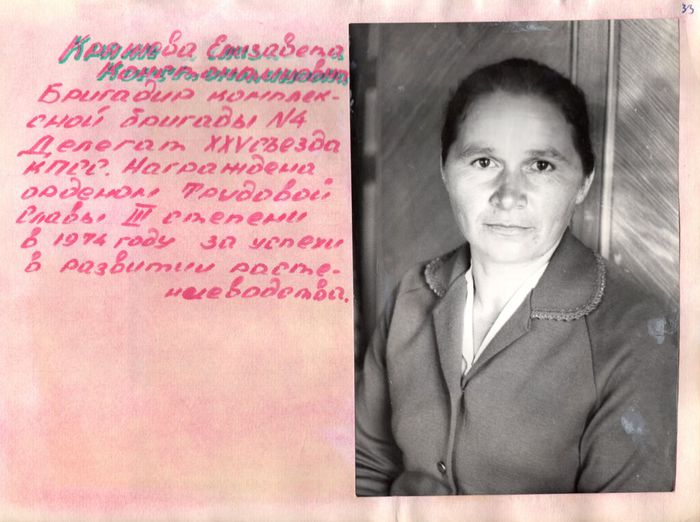 33
Елизавета
Константиновна
Бригадир комплек-
сной бригады №4
Делегат XXV съезда
КПСС. Награждена
орденом Трудовой
Славы III степени
в 1974 году за успехи
в развитии расте-
ниеводства.